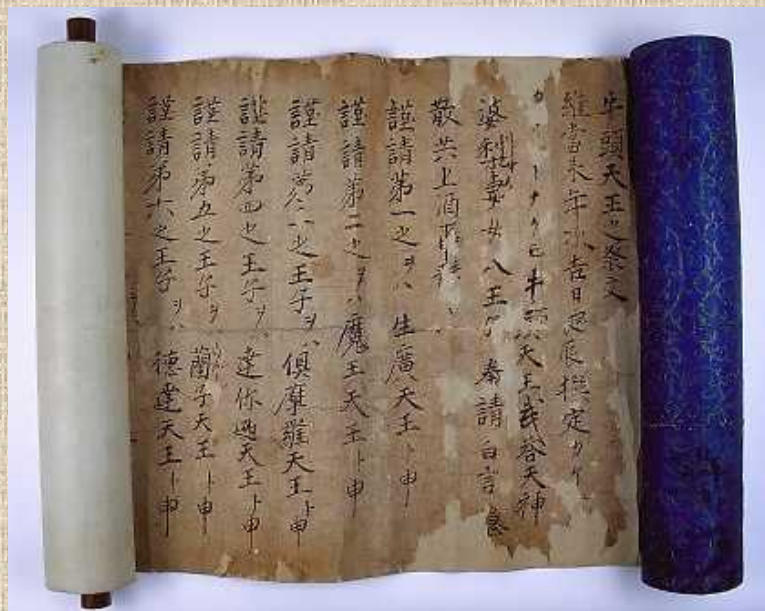 牛頭天王之祭文
維當来年 吉日 良 撰定
牛頭天王 武答天神
婆利 女八王子 奉請白言
散供上酒
謹請第一之ヲハ 生廣天王ト申
謹請第二之ヲハ 魔王天王ト申
謹請第三之王子ヲハ 倶摩羅天王ト申
謹請第四之王子ヲハ 達你 天王ト申
謹請第五之王子ヲ 蘭子天王ト申
謹請第六之王子ヲハ 徳達天王ト申